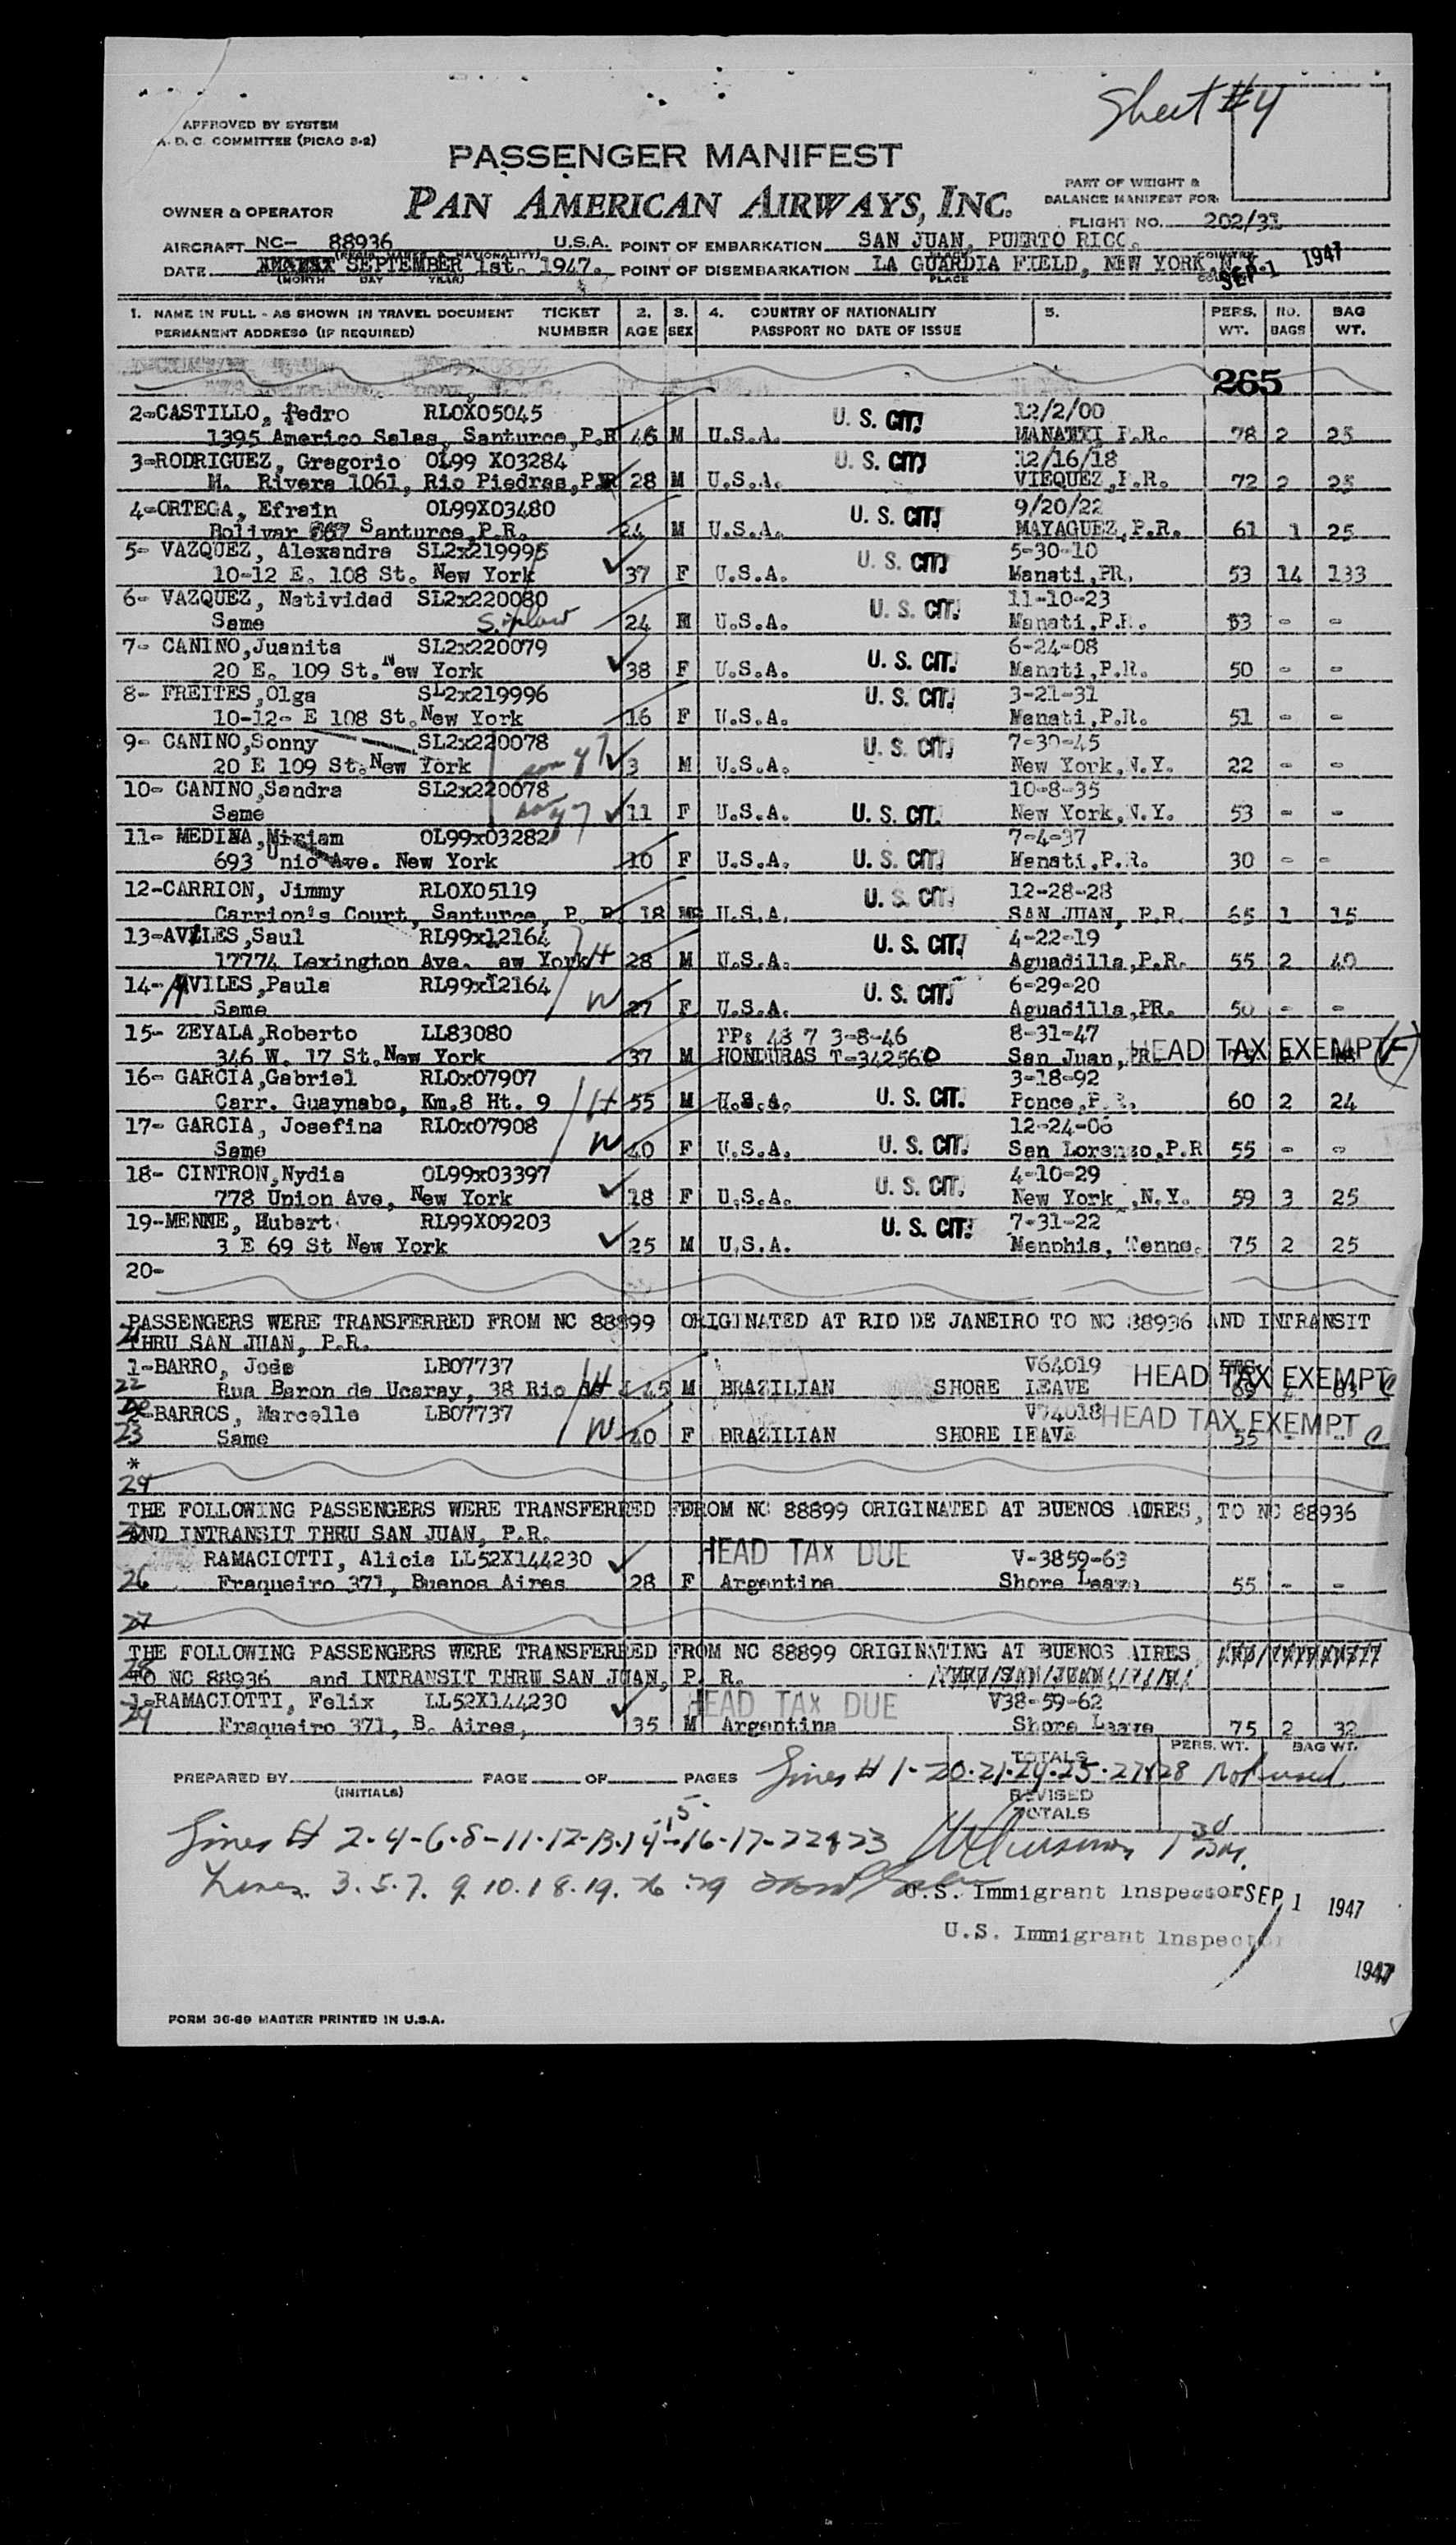 Sheet #4
APPROVED BY SYSTEM
A. D. C. COMMITTEE (PICAO 3-2)
PASSENGER MANIFEST
PART OF WEIGHT &
BALANCE MANIFEST FOR:
OWNER & OPERATOR
PAN AMERICAN AIRWAYS, INC.
FLIGHT NO. 202/31
AIRCRAFT NC- 88936 U.S.A. POINT OF EMBARKATION SAN JUAN, PUERTO RICO.
DATE SEPTEMBER 1st. 1947. POINT OF DISEMBARKATION LA GUARDIA FIELD, NEW YORK, N.Y. SEP 1 1947
(MONTH DAY YEAR) PLACE
1. NAME IN FULL - AS SHOWN IN TRAVEL DOCUMENT TICKET 2. 3. 4. COUNTRY OF NATIONALITY 5. PERS. NO. BAG
PERMANENT ADDRESS (IF REQUIRED) NUMBER AGE SEX PASSPORT NO DATE OF ISSUE WT. BAGS WT.
265
2-CASTILLO, Pedro RLOX05045 U. S. CIT. 12/2/00
1395 Americo Salas, Santurce, P.R 46 M U.S.A. MANATI, P.R. 78 2 25
3-RODRIGUEZ, Gregorio OL99 X03284 U. S. CIT. 12/16/18
M. Rivera 1061, Rio Piedras, P.R 28 M U.S.A. VIEQUEZ, P.R. 72 2 25
4-ORTEGA, Efrain OL99X03480 U. S. CIT. 9/20/22
Bolivar Santurce, P.R. 24 M U.S.A. MAYAGUEZ, P.R. 61 1 25
5- VAZQUEZ, Alexandra SL2x219995 U. S. CIT. 5-30-10
10-12 E. 108 St. New York 37 F U.S.A. Manati, PR. 53 14 133
6- VAZQUEZ, Natividad SL2x220080 U. S. CIT. 11-10-23
Same 24 M U.S.A. Manati, P.R. 53 - -
7- CANINO, Juanita SL2x220079 6-24-08
20 E. 109 St. New York 38 F U.S.A. U. S. CIT. Manati, P.R. 50 - -
8- FREITES, Olga SL2x219996 U. S. CIT. 3-21-31
10-12- E 108 St. New York 16 F U.S.A. Manati, P.R. 51 - -
9- CANINO, Sonny SL2x220078 U. S. CIT. 7-30-45
20 E 109 St. New York son of 7 3 M U.S.A. New York, N.Y. 22 - -
10- CANINO, Sandra SL2x220078 10-8-35
Same 11 F U.S.A. U. S. CIT. New York, N.Y. 53 - -
11- MEDINA, Miriam OL99x03282 7-4-37
693 Unio Ave. New York 10 F U.S.A. U. S. CIT. Manati, P.R. 30 - -
12-CARRION, Jimmy RLOX05119 U. S. CIT. 12-28-28
Carrion's Court, Santurce, P. R. 18 M U.S.A. SAN JUAN, P.R. 65 1 15
13-AVILES, Saul RL99x12164 U. S. CIT. 4-22-19
17774 Lexington Ave. ew York H 28 M U.S.A. Aguadilla, P.R. 55 2 40
14- AVILES, Paula RL99x12164 U. S. CIT. 6-29-20
Same W 27 F U.S.A. Aguadilla, PR. 50 - -
15- ZEYALA, Roberto LL83080 PP: 48 7 3-8-46 8-31-47
346 W. 17 St. New York 37 M HONDURAS T-342560 San Juan, PR HEAD TAX EXEMPT (F)
16- GARCIA, Gabriel RLOx07907 3-18-92
Carr. Guaynabo, Km.8 Ht. 9 H 55 M U.S.A. U. S. CIT. Ponce, P.R. 60 2 24
17- GARCIA, Josefina RLOx07908 12-24-06
Same W 40 F U.S.A. U. S. CIT. San Lorenzo, P.R 55 - -
18- CINTRON, Nydia OL99x03397 U. S. CIT. 4-10-29
778 Union Ave, New York 18 F U.S.A. New York, N.Y. 59 3 25
19-MENNE, Hubert RL99X09203 U. S. CIT. 7-31-22
3 E 69 St New York 25 M U.S.A. Menphis, Tenne. 75 2 25
20-
PASSENGERS WERE TRANSFERRED FROM NC 88899 ORIGINATED AT RIO DE JANEIRO TO NC 88936 AND INTRANSIT
THRU SAN JUAN, P.R.
1-BARRO, Jose LB07737 V64019 HEAD TAX EXEMPT C
22 Rua Baron de Ucaray, 38 Rio de H 45 M BRAZILIAN SHORE LEAVE
BARROS, Marcelle LB07737 V74018 HEAD TAX EXEMPT C
23 Same W 40 F BRAZILIAN SHORE LEAVE 55 - -
*
24
THE FOLLOWING PASSENGERS WERE TRANSFERRED FEROM NC 88899 ORIGINATED AT BUENOS AIRES, TO NC 88936
AND INTRANSIT THRU SAN JUAN, P.R.
RAMACIOTTI, Alicia LL52X144230 HEAD TAX DUE V-3859-63
26 Fraqueiro 371, Buenos Aires 28 F Argentina Shore Leave 55 - -
27
THE FOLLOWING PASSENGERS WERE TRANSFERRED FROM NC 88899 ORIGINATING AT BUENOS AIRES
28 TO NC 88936 and INTRANSIT THRU SAN JUAN, P. R.
1-RAMACIOTTI, Felix LL52X144230 HEAD TAX DUE V38-59-62
29 Fraqueiro 371, B. Aires, 35 M Argentina Shore Leave 75 2 32
TOTALS PERS. WT. BAG WT.
PREPARED BY PAGE OF PAGES Lines # 1-20-21-24-25-27&28 Not used
(INITIALS)
REVISED
TOTALS
Lines # 2-4-6-8-11-12-13-14-15-16-17-22&23
Lines 3.5.7.9.10.18.19.26.29
U.S. Immigrant Inspector SEP 1 1947
U.S. Immigrant Inspector
1947
FORM 36-69 MASTER PRINTED IN U.S.A.